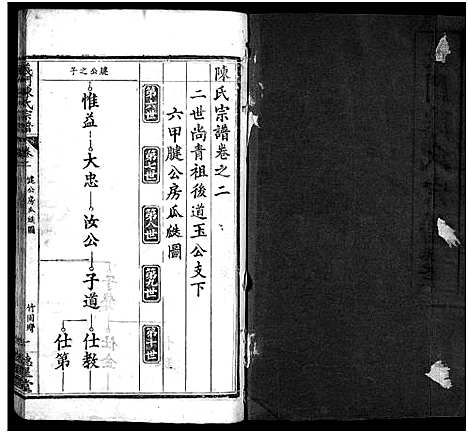 陳氏宗譜卷之二
二世尚青祖後道玉公支下
六甲腱公房瓜瓞圖
第六世
第七世
第八世
第九世
第十世
腱公之子
惟益
大忠
汝公
子道
仕教
仕第
陳氏宗譜
腱公房瓜瓞圖